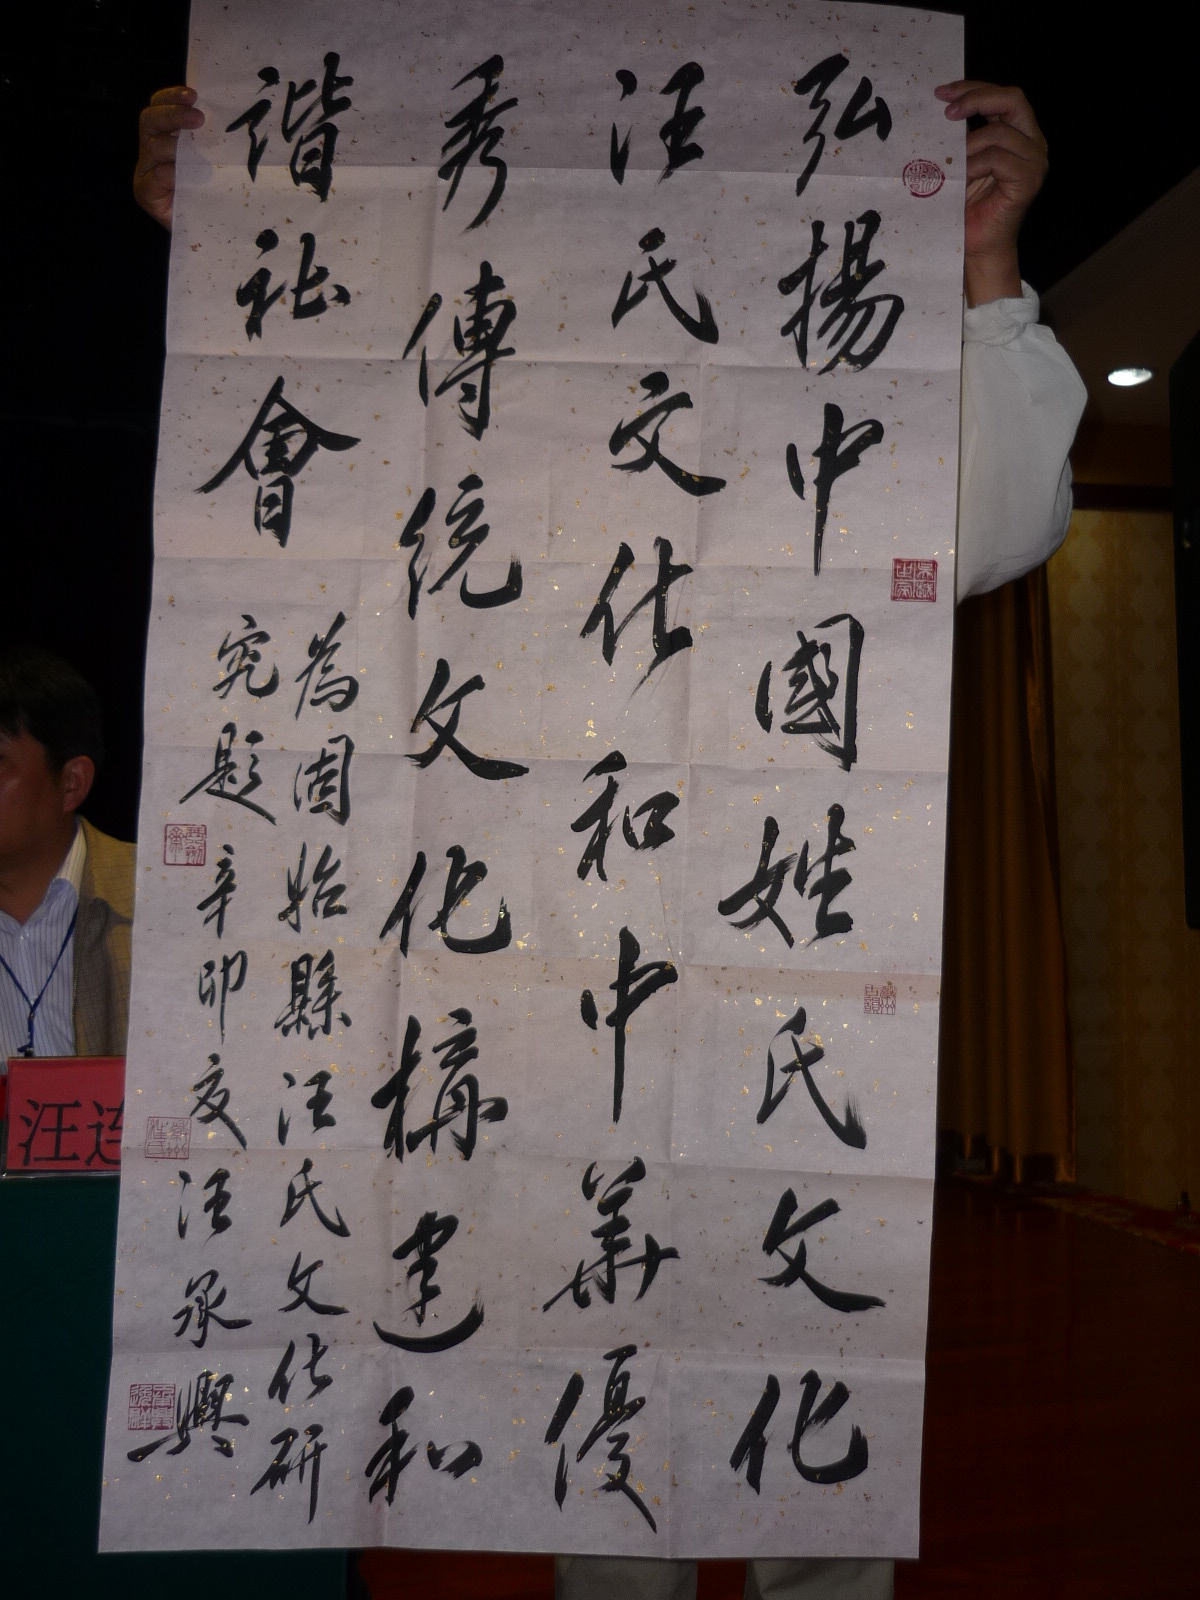 弘揚中國姓氏文化
汪氏文化和中華優
秀傳統文化構建和
諧社會
為固始縣汪氏文化研
究題 辛卯夏 汪承興
汪连